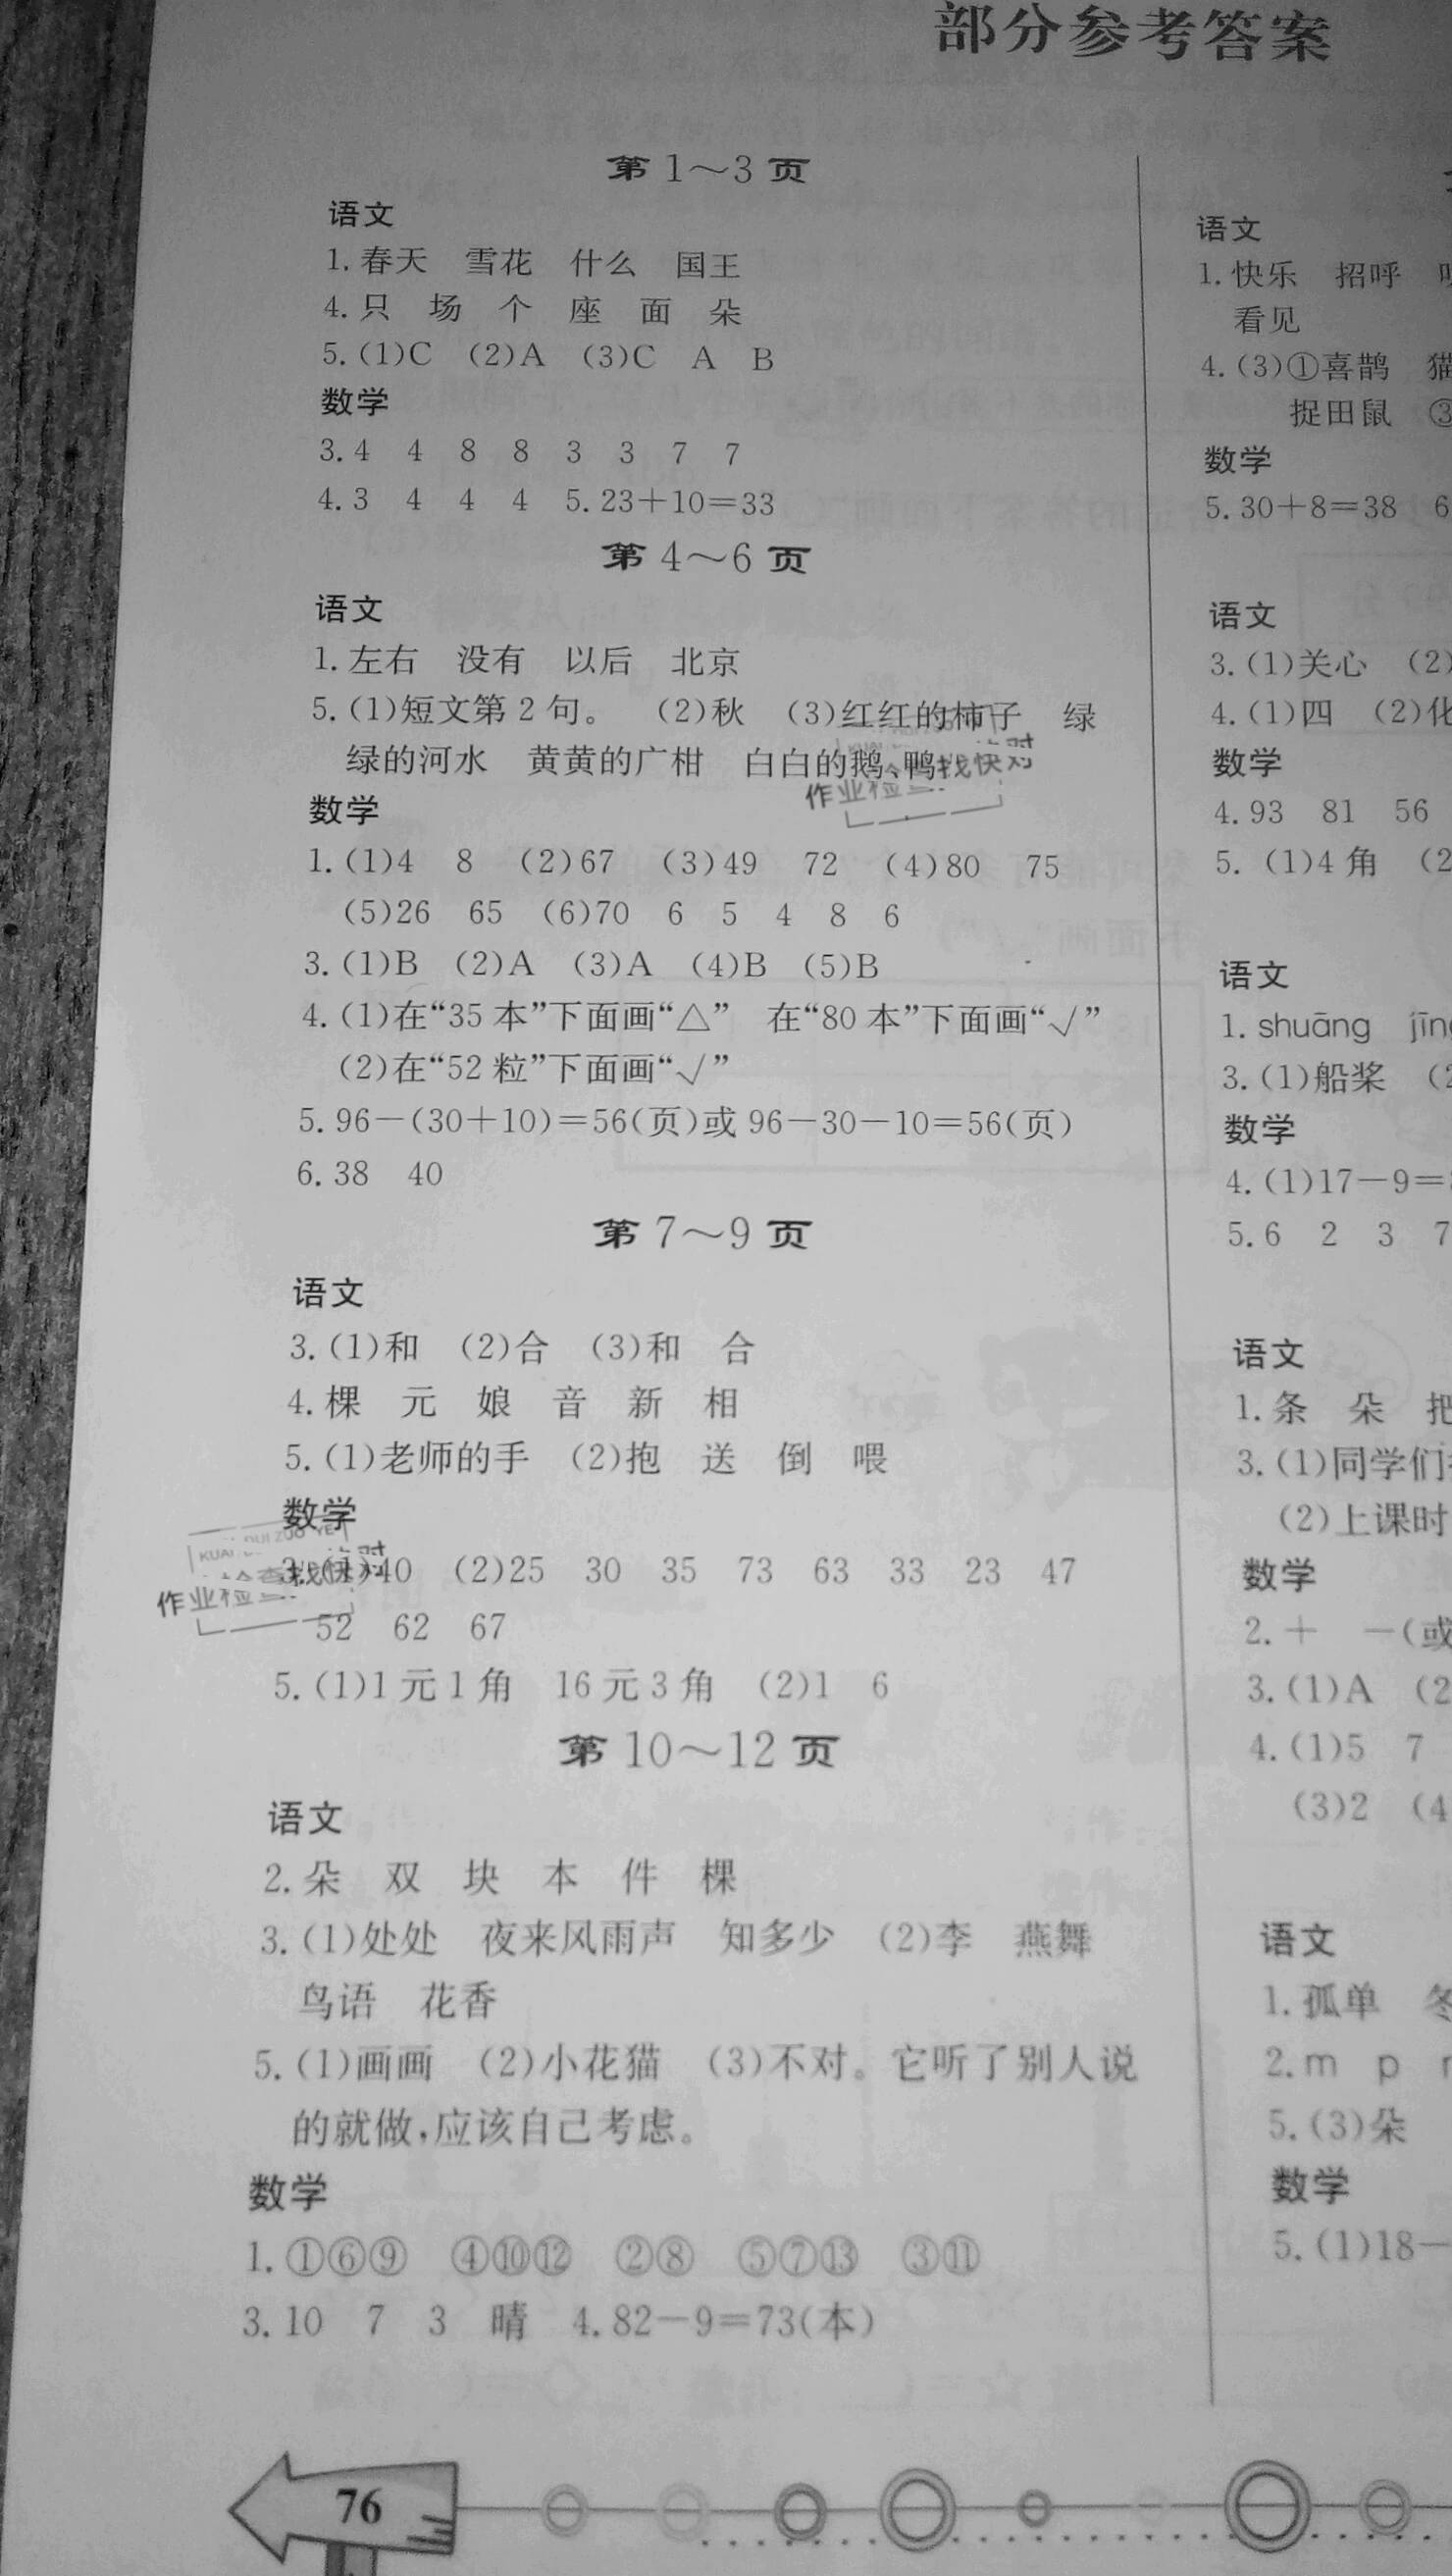 部分参考答案
第 1～3 页
语文
1. 春天 雪花 什么 国王
4. 只 场 个 座 面 朵
5. (1)C (2)A (3)C A B
数学
3. 4 4 8 8 3 3 7 7
4. 3 4 4 4 5. 23＋10＝33
第 4～6 页
语文
1. 左右 没有 以后 北京
5. (1)短文第 2 句。 (2)秋 (3)红红的柿子 绿
绿的河水 黄黄的广柑 白白的鹅、鸭
数学
1. (1)4 8 (2)67 (3)49 72 (4)80 75
(5)26 65 (6)70 6 5 4 8 6
3. (1)B (2)A (3)A (4)B (5)B
4. (1)在“35 本”下面画“△” 在“80 本”下面画“√”
(2)在“52 粒”下面画“√”
5. 96－(30＋10)＝56(页)或 96－30－10＝56(页)
6. 38 40
第 7～9 页
语文
3. (1)和 (2)合 (3)和 合
4. 棵 元 娘 音 新 相
5. (1)老师的手 (2)抱 送 倒 喂
数学
3. (1)40 (2)25 30 35 73 63 33 23 47
52 62 67
5. (1)1 元 1 角 16 元 3 角 (2)1 6
第 10～12 页
语文
2. 朵 双 块 本 件 棵
3. (1)处处 夜来风雨声 知多少 (2)李 燕舞
鸟语 花香
5. (1)画画 (2)小花猫 (3)不对。它听了别人说
的就做,应该自己考虑。
数学
1. ①⑥⑨ ④⑩⑫ ②⑧ ⑤⑦⑬ ③⑪
3. 10 7 3 晴 4. 82－9＝73(本)
76
语文
1. 快乐 招呼
看见
4. (3)①喜鹊 猫
捉田鼠 ③
数学
5. 30＋8＝38 6
语文
3. (1)关心 (2)
4. (1)四 (2)化
数学
4. 93 81 56
5. (1)4 角 (2
语文
1. shuāng jīn
3. (1)船桨 (2
数学
4. (1)17－9＝
5. 6 2 3 7
语文
1. 条 朵 把
3. (1)同学们
(2)上课时
数学
2. ＋ －(或
3. (1)A (2
4. (1)5 7
(3)2 (4
语文
1. 孤单 冬
2. m p
5. (3)朵
数学
5. (1)18－
作业检查找快对
作业检查找快对